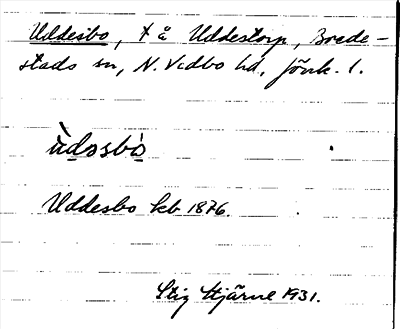 Uddesbo, t å Uddestorp, Brede-
stads sn, N. Vedbo hd, Jönk. l.
ùdǝsbò
Uddesbo kb 1876.
Stig Hjärne 1931.